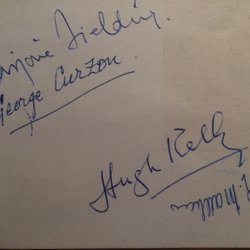 Marjorie Fielding
George Curzon
Hugh Kelly
Matthews